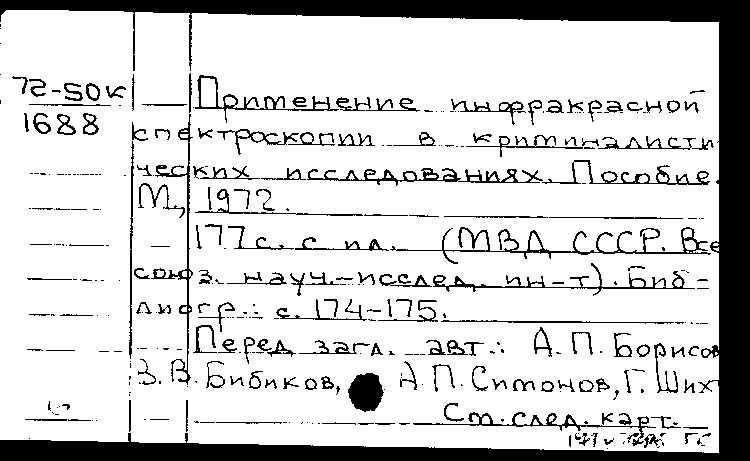 72-50к Применение инфракрасной
1688 спектроскопии в криминалисти
ческих исследованиях. Пособие.
М., 1972.
177 с. с ил. (МВД СССР. Все
союз. науч.-исслед. ин-т). Биб-
лиогр.: с. 174-175.
Перед загл. авт.: А.П. Борисов
З.В. Бибиков, А.П. Симонов, Г. Ших
См. след. карт.